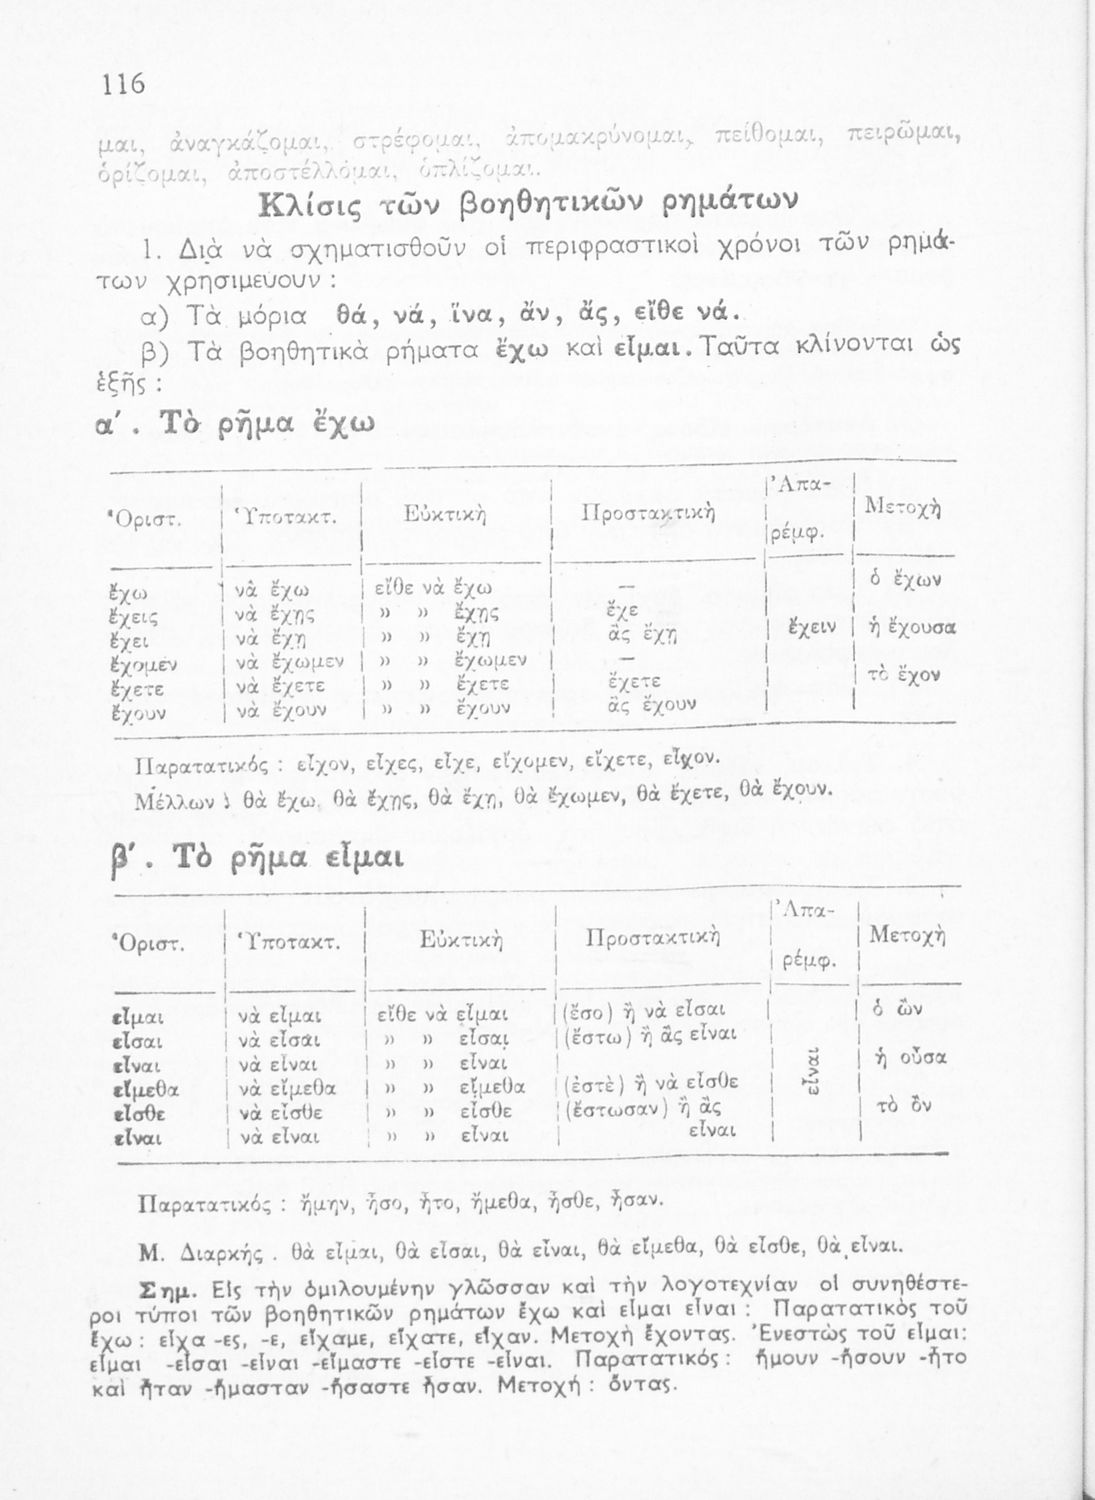 116
μαι, ἀναγκάζομαι, στρέφομαι, ἀπομακρύνομαι, πείθομαι, πειρῶμαι,
ὁρίζομαι, ἀποστέλλομαι, ὁπλίζομαι.
Κλίσις τῶν βοηθητικῶν ρημάτων
1. Διὰ νὰ σχηματισθοῦν οἱ περιφραστικοὶ χρόνοι τῶν ρημά-
των χρησιμεύουν :
α) Τὰ μόρια θά, νά, ἵνα, ἄν, ἄς, εἴθε νά.
β) Τὰ βοηθητικὰ ρήματα ἔχω καὶ εἶμαι. Ταῦτα κλίνονται ὡς
ἑξῆς :
α΄. Τὸ ρῆμα ἔχω
Ὁριστ. | Ὑποτακτ. | Εὐκτικὴ | Προστακτικὴ | Ἀπα-ρέμφ. | Μετοχὴ
ἔχω | νὰ ἔχω | εἴθε νὰ ἔχω | — | | ὁ ἔχων
ἔχεις | νὰ ἔχῃς | » » ἔχῃς | ἔχε
ἔχει | νὰ ἔχῃ | » » ἔχῃ | ἂς ἔχῃ | ἔχειν | ἡ ἔχουσα
ἔχομεν | νὰ ἔχωμεν | » » ἔχωμεν | —
ἔχετε | νὰ ἔχετε | » » ἔχετε | ἔχετε | | τὸ ἔχον
ἔχουν | νὰ ἔχουν | » » ἔχουν | ἂς ἔχουν
Παρατατικός : εἶχον, εἶχες, εἶχε, εἴχομεν, εἴχετε, εἶχον.
Μέλλων : θὰ ἔχω, θὰ ἔχῃς, θὰ ἔχῃ, θὰ ἔχωμεν, θὰ ἔχετε, θὰ ἔχουν.
β΄. Τὸ ρῆμα εἶμαι
Ὁριστ. | Ὑποτακτ. | Εὐκτικὴ | Προστακτικὴ | Ἀπα-ρέμφ. | Μετοχὴ
εἶμαι | νὰ εἶμαι | εἴθε νὰ εἶμαι | (ἔσο) ἢ νὰ εἶσαι | | ὁ ὢν
εἶσαι | νὰ εἶσαι | » » εἶσαι | (ἔστω) ἢ ἂς εἶναι
εἶναι | νὰ εἶναι | » » εἶναι | | εἶναι | ἡ οὖσα
εἴμεθα | νὰ εἴμεθα | » » εἴμεθα | (ἐστὲ) ἢ νὰ εἶσθε
εἶσθε | νὰ εἶσθε | » » εἶσθε | (ἔστωσαν) ἢ ἂς | | τὸ ὂν
εἶναι | νὰ εἶναι | » » εἶναι | εἶναι
Παρατατικός : ἤμην, ἦσο, ἦτο, ἤμεθα, ἦσθε, ἦσαν.
Μ. Διαρκής . θὰ εἶμαι, θὰ εἶσαι, θὰ εἶναι, θὰ εἴμεθα, θὰ εἶσθε, θὰ εἶναι.
Σημ. Εἰς τὴν ὁμιλουμένην γλῶσσαν καὶ τὴν λογοτεχνίαν οἱ συνηθέστε-
ροι τύποι τῶν βοηθητικῶν ρημάτων ἔχω καὶ εἶμαι εἶναι : Παρατατικὸς τοῦ
ἔχω : εἶχα -ες, -ε, εἴχαμε, εἴχατε, εἶχαν. Μετοχὴ ἔχοντας. Ἐνεστὼς τοῦ εἶμαι:
εἶμαι -εἶσαι -εἶναι -εἴμαστε -εἶστε -εἶναι. Παρατατικός : ἤμουν -ἤσουν -ἦτο
καὶ ἦταν -ἤμασταν -ἤσαστε ἦσαν. Μετοχή : ὄντας.